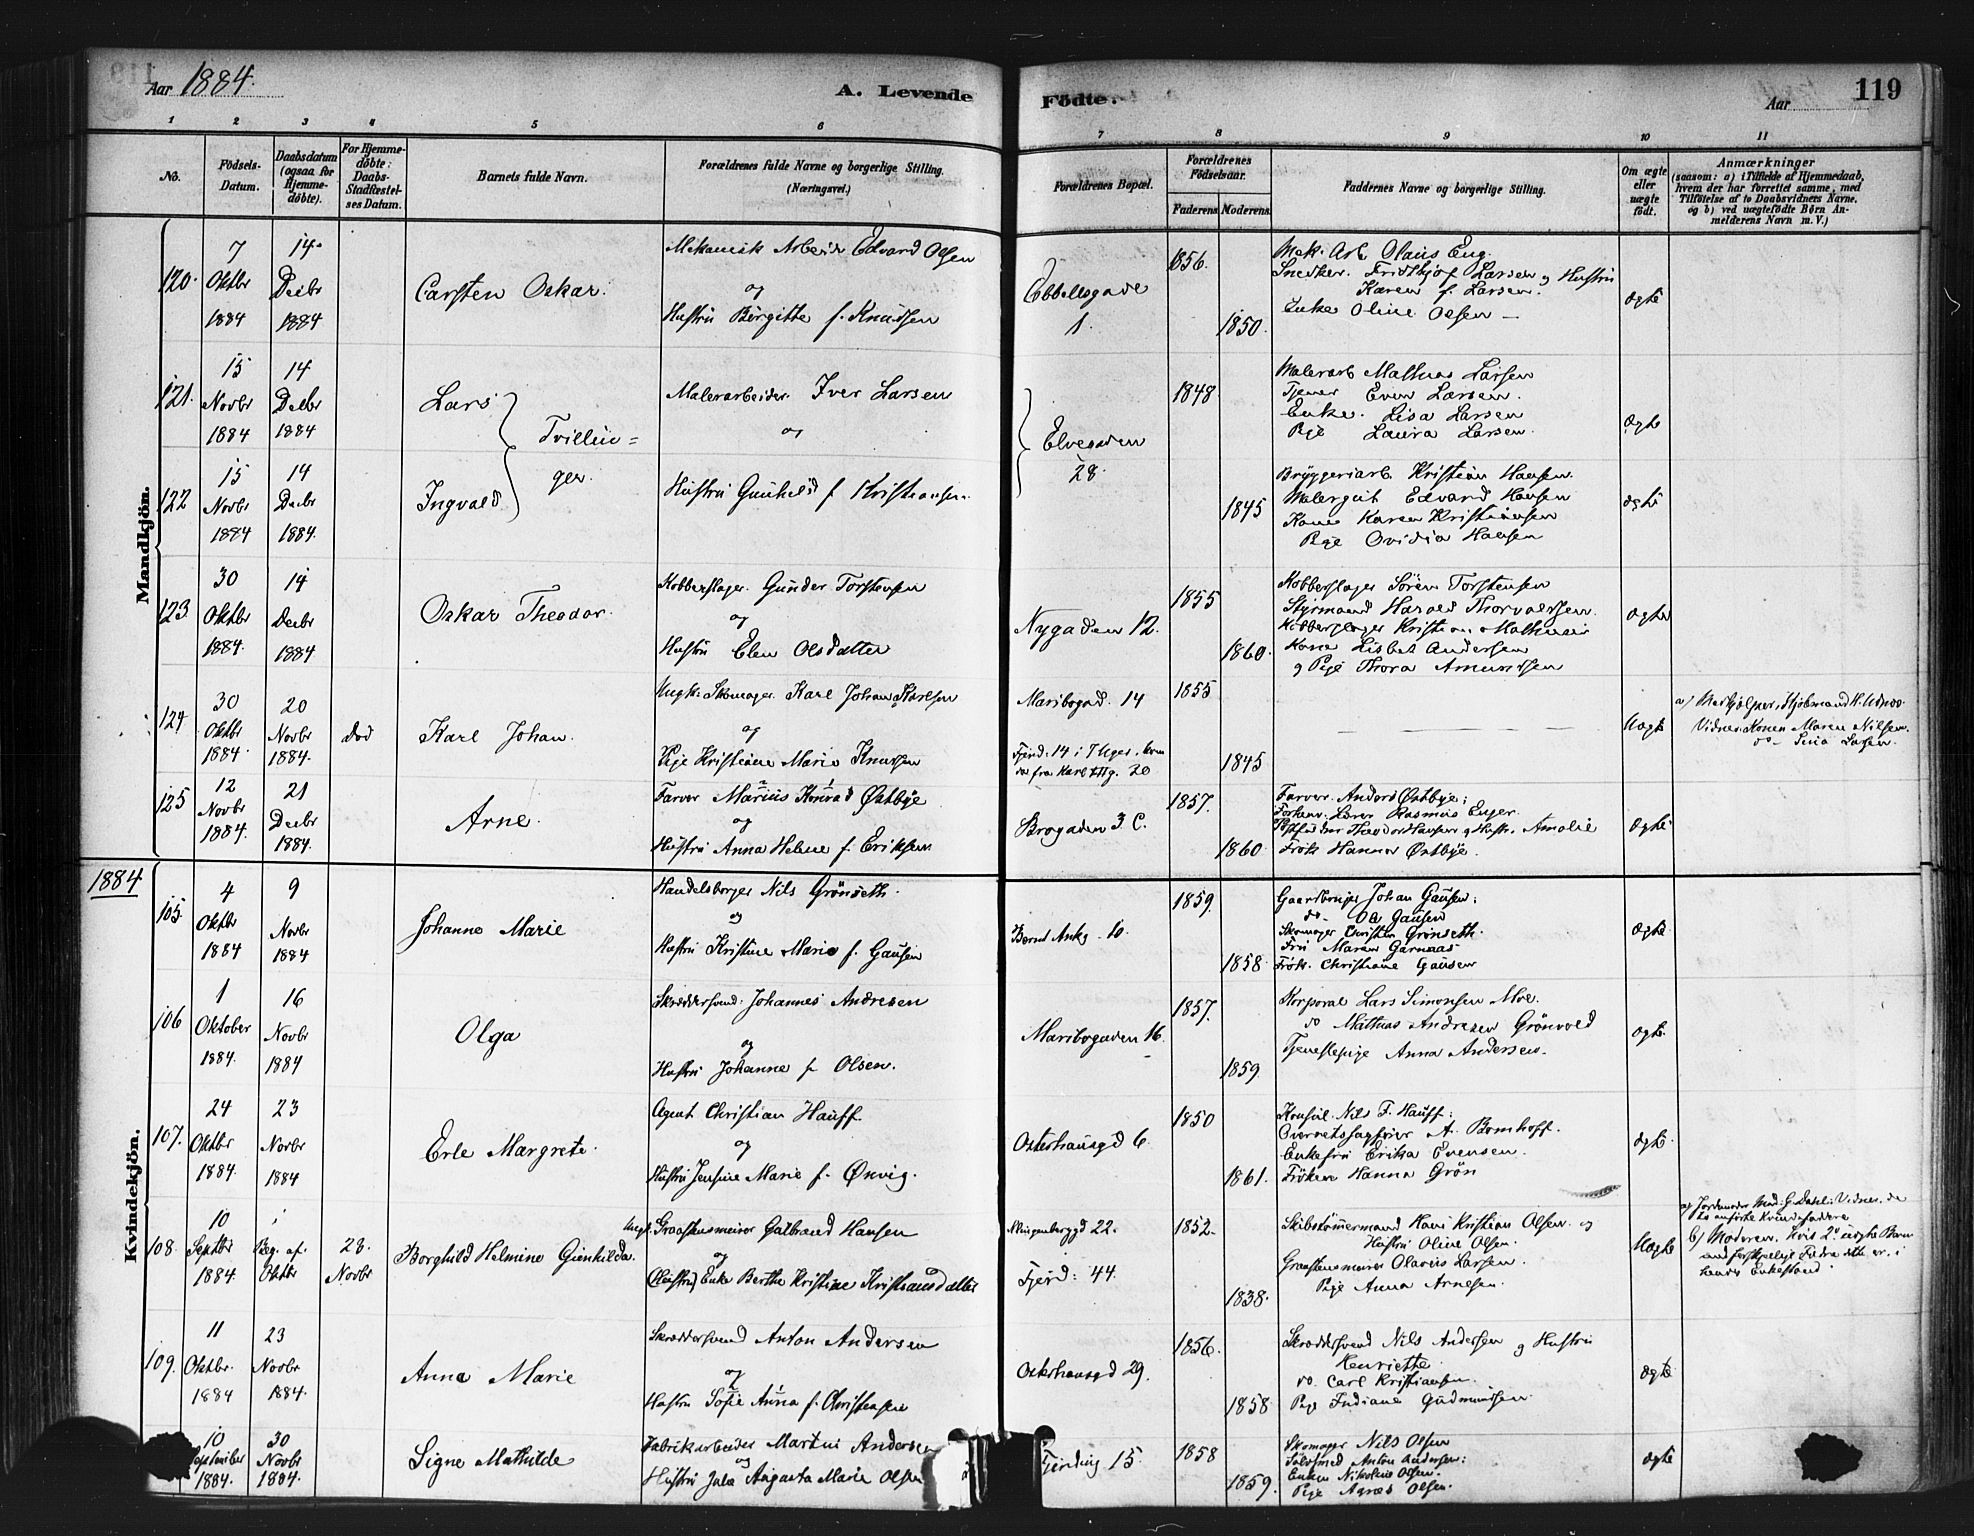 Aar 1884.
A. Levende Födte.
Aar
119
1 2 3 4 5 6 7 8 9 10 11
No.
Födsels-Datum.
Daabsdatum (ogsaa for Hjemme-döbte).
For Hjemme-döbte: Daabs-Stadfæstel-ses Datum.
Barnets fulde Navn.
Forældrenes fulde Navne og borgerlige Stilling. (Næringsvei.)
Forældrenes Bopæl.
Forældrenes Födselsaar.
Faderens Moderens
Faddernes Navne og borgerlige Stilling.
Om ægte eller uægte födt.
Anmærkninger (saasom: a) i Tilfælde af Hjemmedaab, hvem der har forrettet samme, med Tilföielse af to Daabsvidners Navne, og b) ved uægtefödte Börn An-melderens Navn m. V.)
Mandkjön.
120. 7 Oktbr 1884
14 Decbr 1884
Carsten Oskar.
Mekanisk Arbeider Edvard Olsen
og
Hustru Birgitte f. Knudsen
Ebbellsgade 1.
1856.
1850.
Mek. Arb Olaus Eng.
Snedker. Fridthjof Larsen og Hustru
Karen f. Larsen.
Enke Oline Olsen
ægte
121. 15 Novbr 1884
14 Decbr 1884
Lars
Tvillinger.
Malerarbeider Iver Larsen
og
Elvegaden 28.
1848
Malerarb Mathias Larsen
Tjener Even Larsen.
Enke. Lisa Larsen
Pige Laura Larsen.
ægte
122 15 Novbr 1884
14 Decbr 1884.
Ingvald
Hustru Gunhild f. Kristiansen
1845
Bryggeriarb Kristian Hansen
Malergut Edvard Hansen
Kone Karen Kristiansen
Pige Ovidia Hansen
ægte
123 30 Oktbr 1884.
14 Decbr 1884
Oskar Theodor.
Kobberslager Gunder Torstensen
og
Hustru Elen Olsdatter
Nygaden 12.
1855
1860.
Kobberslager Sören Torstensen
Styrmand Harald Thorvaldsen.
Kobberslager Kristian Mathisen
Kone Lisbet Andersen
og Pige Thora Amundsen
ægte
124 30 Oktbr 1884.
20 Novbr 1884.
död
Karl Johan.
Ungk. Skomager Karl Johan Karlsen
og
Pige Kristiane Marie Knudsen
Maribogad. 14
1855
1845
Uægte
Vidner: Konen Maren Nilsen
do Lina Larsen.
125 12 Novbr 1884.
21 Decbr 1884.
Arne.
Farver Marius Konrad Østbye
og
Hustru Anna Helene f. Eriksen
Brogaden 3 C.
1857.
1860
Farver. Anders Østbye;
Rasmus Enger.
Theodor Hansen og Hustr. Amalie
Frök Hanna Østbye.
ægte
1884
Kvindekjön.
105. 4 Oktbr 1884
9 Novbr 1884
Johanne Marie
Handelsborger Nils Grönseth.
og
Hustru Kristine Marie f. Gausen
Bernt Ankg. 10.
1859.
1858.
Gaardbruger Johan Gausen;
do. Ole Gausen
Skomager Christen Grönseth.
Fru Maren Garnaas
Frök. Christiane Gausen
ægte
106 1 Oktober 1884.
16 Novbr 1884
Olga
Skræddersvend. Johannes Andresen
og
Hustru Johanne f. Olsen.
Maribogaden 16.
1857.
1859
Korporal Lars Simonsen Moe.
do Mathias Andresen Grönvold
Tjenestepige Anna Andersen.
ægte
107. 24 Oktbr 1884.
23 Novbr 1884
Erle Margrete.
Agent Christian Hauff
og
Hustru Jensine Marie f. Ønvig.
Osterhausgd 6.
1850
1861.
Konsul. Nils F. Hauff;
Overretssagförer A. Bomhoff.
Enkefru Erika Evensen.
Fröken Hanna Grön
ægte
108. 10 Septbr 1884.
Beg. af Oktbr
23. Novbr
Borghild Helmine Gunhilda.
Ungk. Graastensmurer Gulbrand Hansen
og
Enke Berthe Kristine Kristiansdatter
Munzenberggd 22.
Fjerd: 44.
1852.
1838.
Skibstömmermand Hans Kristian Olsen og
Hustru Oline Olsen.
Graastensmurer Olavus Larsen.
Pige Anna Arnesen.
Uægte
b) Moderen. Hvis 2det uægte Barn
hendes Enkestand.
109. 11 Oktbr. 1884
23 Novbr 1884.
Anna Marie
Skræddersvend Anton Andersen
og
Hustru Sofie Anna f. Christensen
Osterhausgd 29.
1856.
1858
Skræddersvend Nils Andersen og Hustru
Henriette.
do. Carl Kristiansen.
Pige Indiane Gudmundsen
ægte
10 September 1884.
30 Novbr 1884.
Signe Mathilde
Fabrikarbeider Martin Andersen
og
Hustru Julie Augusta Marie Olsen
Fjerding 15.
1858
1859.
Skomager Nils Olsen
Sölvsmed Anton Andersen;
Enken Nikoline Olsen.
Pige Agnes Olsen.
ægte